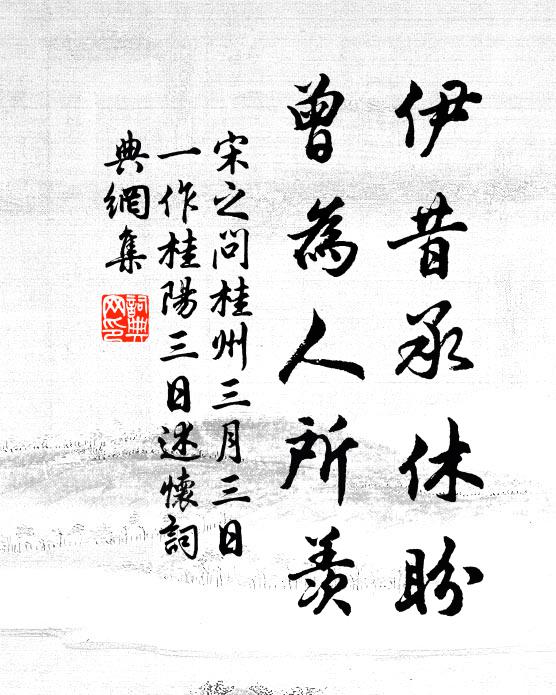 伊昔承休盼
曾為人所羨
宋之问桂州三月三日
一作桂陽三日述懷詞
典網集
詞典
网印